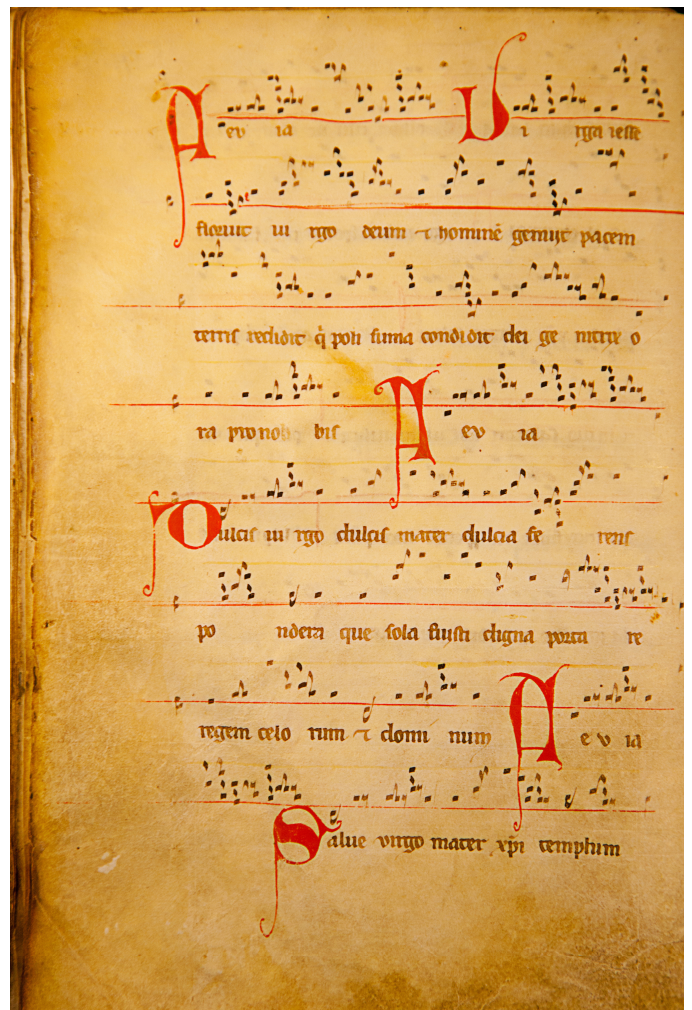 A ev ia V i rga iesse
floruit vi rgo deum ⁊ hominē genuit pacem
terris reddidit q̄ poli suma condidit dei ge nitrix o
ra pro nobis bis A ev ia
Dulcis vi rgo dulcis mater dulcia fe rens
po ndera que sola fuisti digna porta re
regem celo rum ⁊ domi num A e v ia
Salve virgo mater xp̄i templum